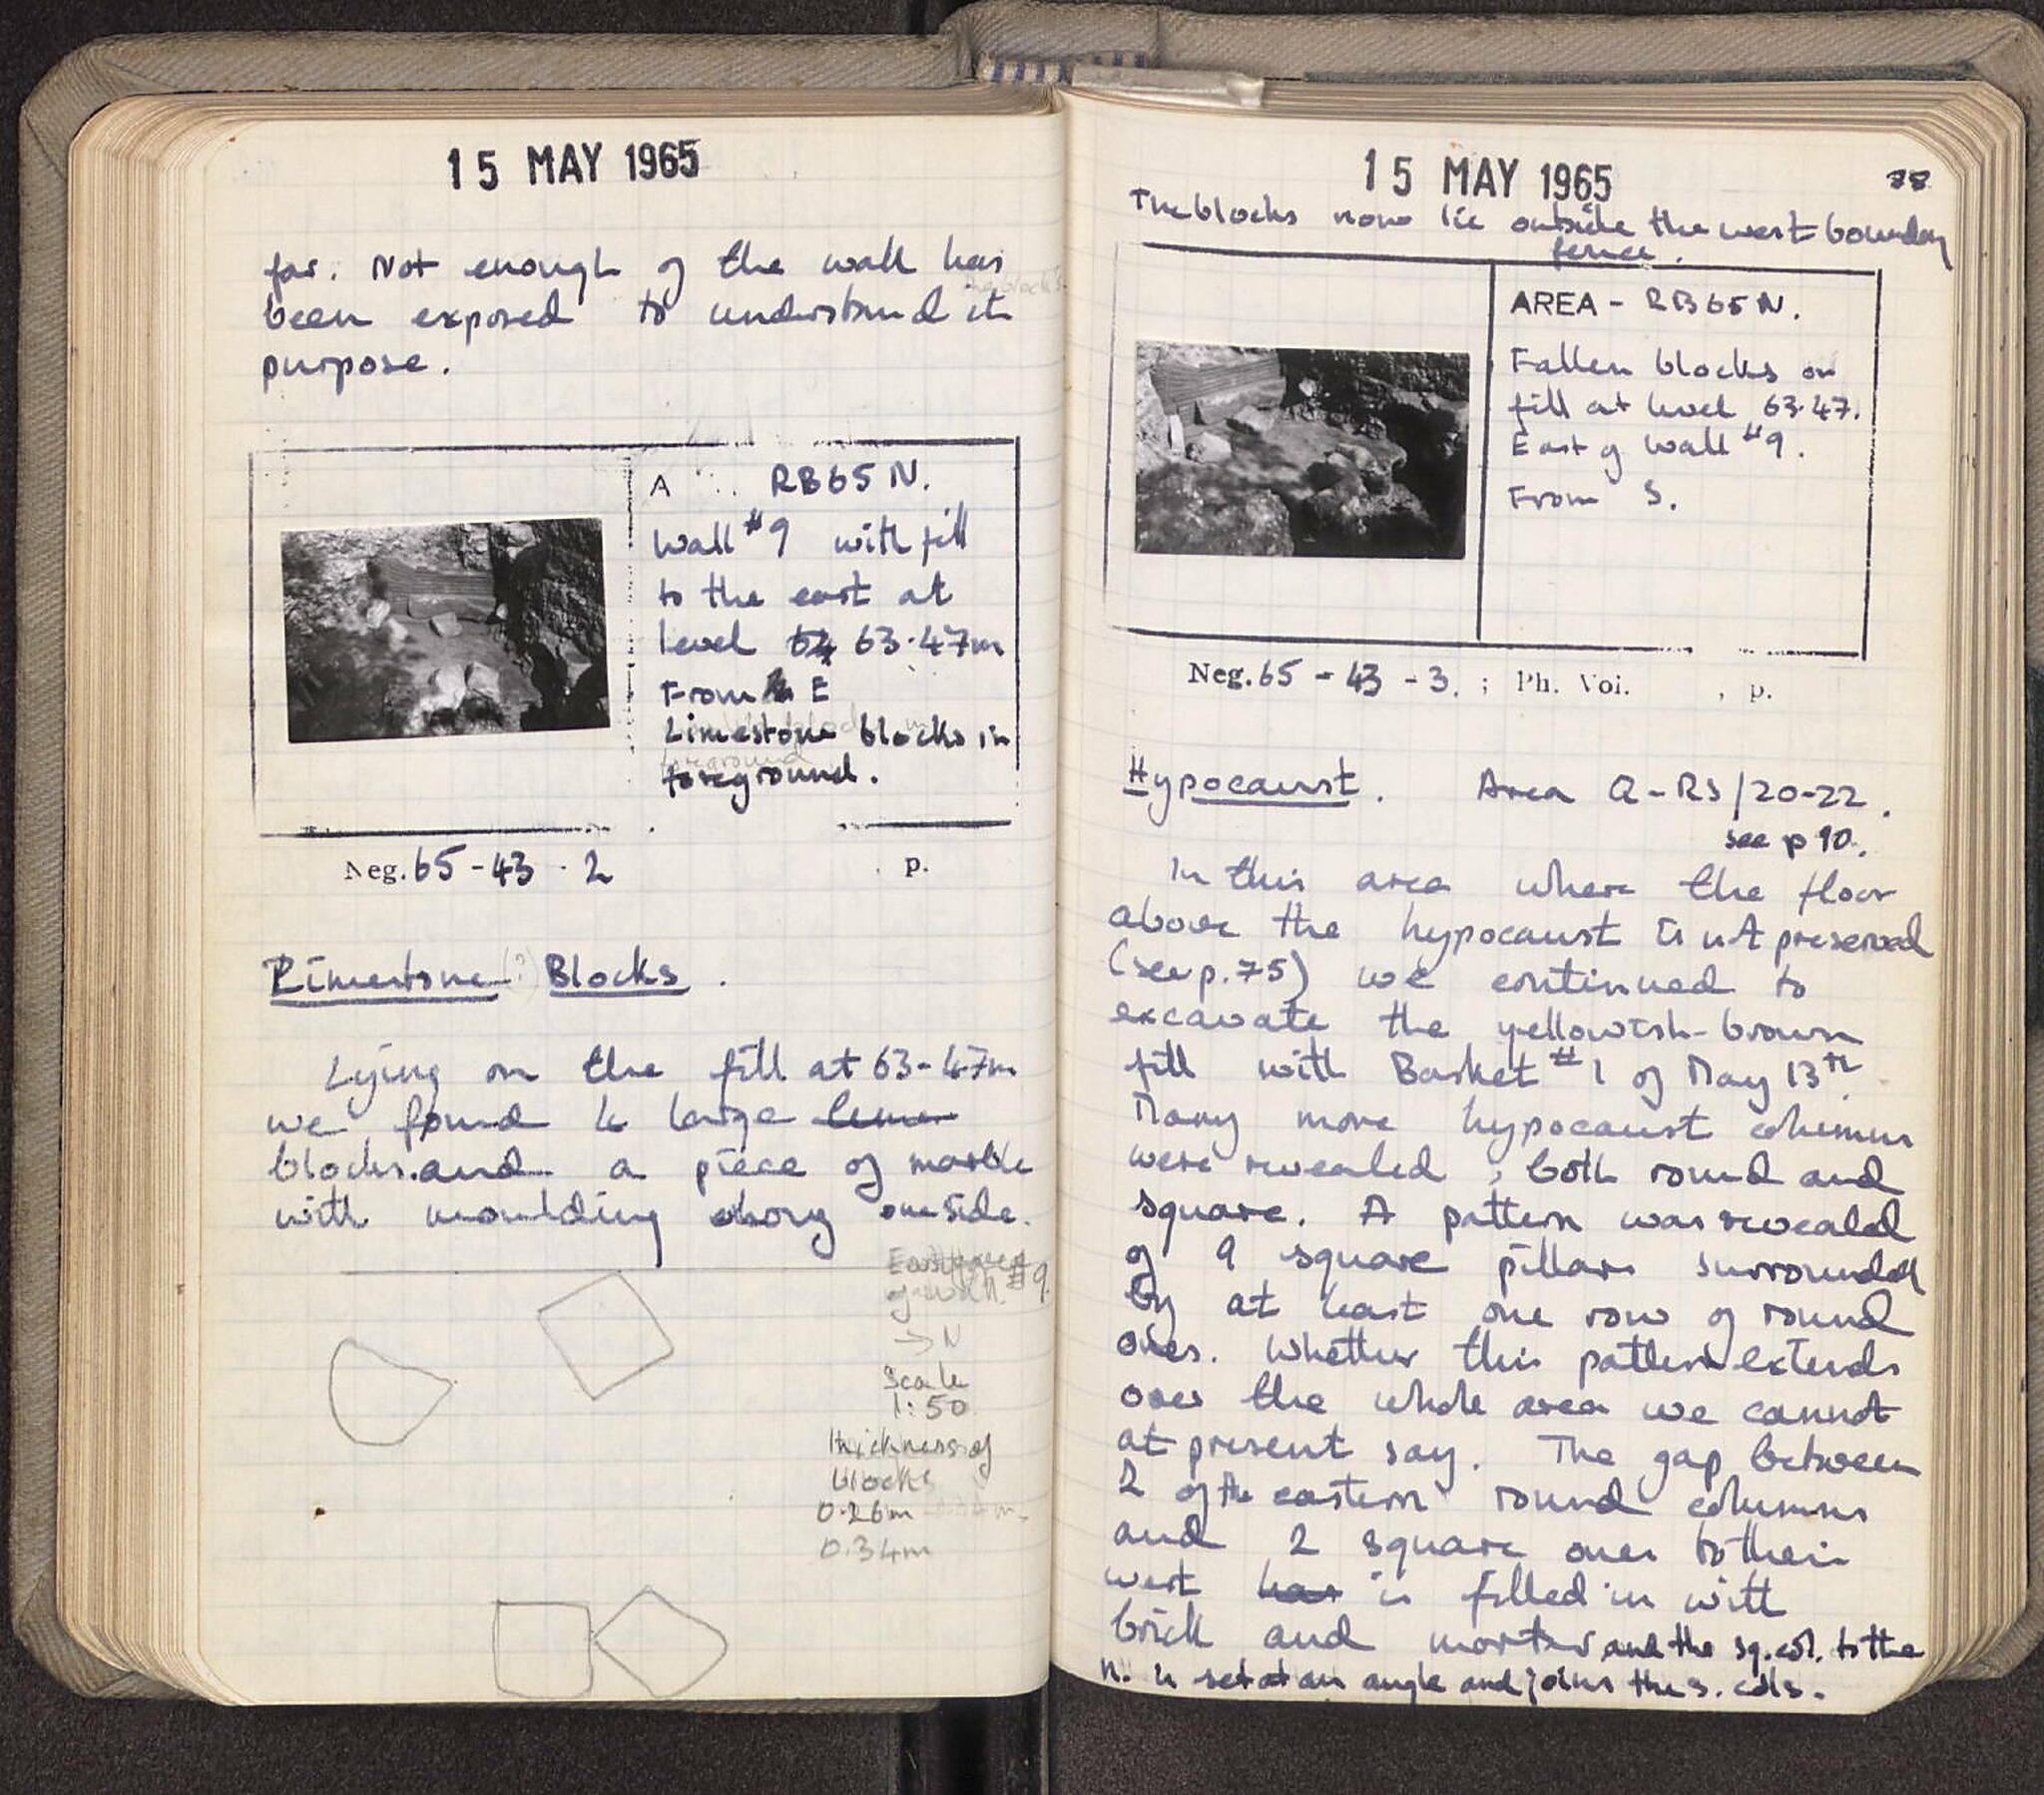 15 MAY 1965
far. Not enough of the wall has
been exposed to understand its
purpose.
A RB65N.
Wall #9 with fill
to the east at
level 64 63.47m
From E
Limestone blocks in
foreground.
Neg. 65-43-2 p.
Limestone (?) Blocks.
Lying on the fill at 63-47m
we found 4 large lime
blocks. and a piece of marble
with moulding along one side.
East face
of wall #9.
→ N
Scale
1:50
thickness of
blocks
0.26m
0.34m
15 MAY 1965
88
The blocks now lie outside the west bounday
fence.
AREA - RB65N.
Fallen blocks on
fill at level 63.47.
East of Wall #9.
From S.
Neg. 65-43-3. ; Ph. Voi. , p.
Hypocaust. Area Q-RS/20-22.
see p 90.
In this area where the floor
above the hypocaust is not preserved
(see p. 75) we continued to
excavate the yellowish-brown
fill with Basket #1 of May 13th.
Many more hypocaust columns
were revealed, both round and
square. A pattern was revealed
of 9 square pillars surrounded
by at least one row of round
ones. Whether this pattern extends
over the whole area we cannot
at present say. The gap between
2 of the eastern round columns
and 2 square ones to their
west has is filled in with
brick and mortar and the sq. col. to the
n. is set at an angle and joins the s. cols.